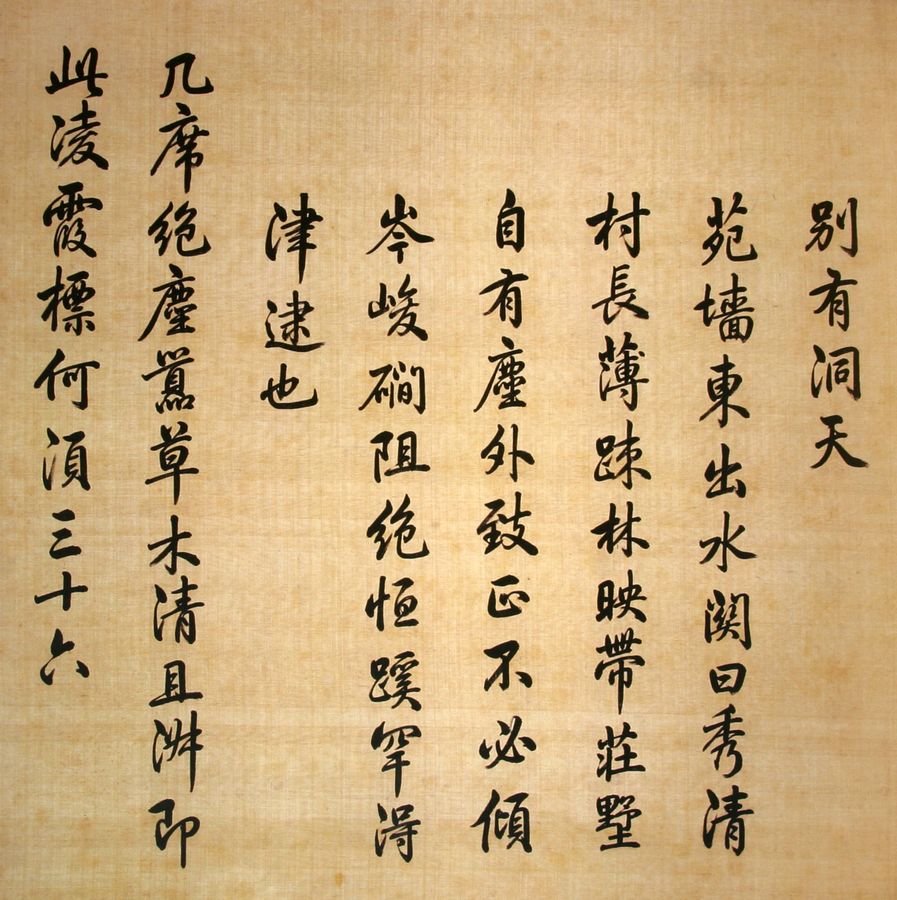 別有洞天
苑墻東出水関曰秀清
村長薄疎林映帶莊墅
自有塵外致正不必傾
岑峻磵阻絶恒蹊罕得
津逮也
几席絶塵囂草木清且淑即
此淩霞標何須三十六